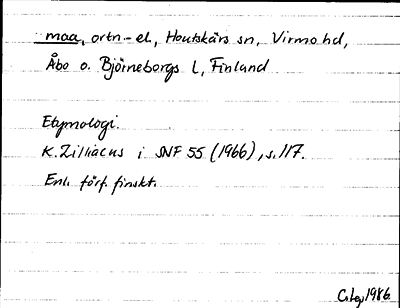 maa, ortn.-el., Houtskärs sn, Virmo hd,
Åbo o. Björneborgs l, Finland
Etymologi.
K. Zilliacus i SNF 55 (1966), s. 117.
Enl. förf. finskt.
1986